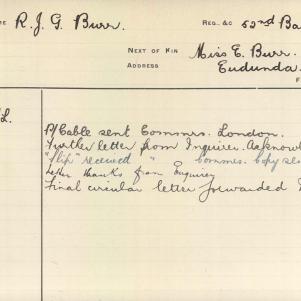 ME R. J. G. Burr. REG. &C 52nd Ba
NEXT OF KIN Miss E. Burr.
ADDRESS Eudunda.
L.
P/Cable sent Commrs. London.
Further letter from Inquirer. Acknowl
"Slip" received " Commrs. Copy se
Letter thanks from Enquirer
Final circular letter forwarded